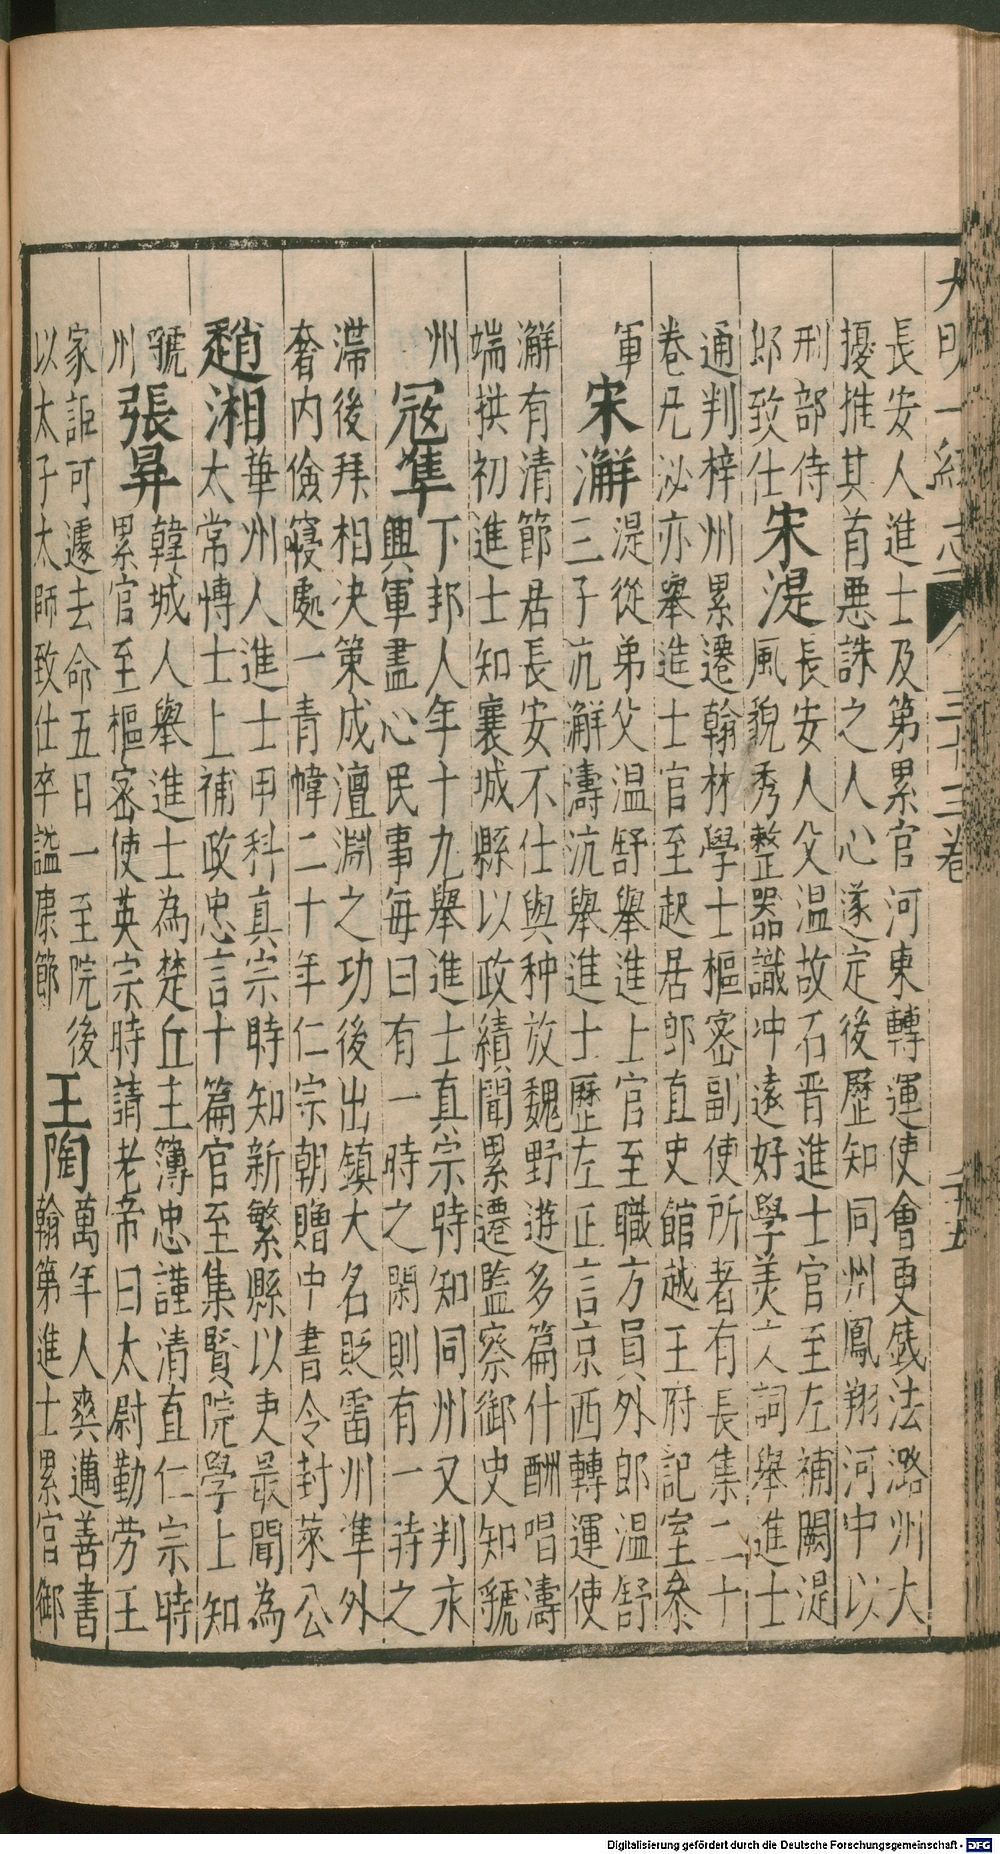 大明一統志 三十三卷 二十五
長安人進士及第累官河東轉運使會更鹾法潞州大
擾推其首惡誅之人心遂定後歷知同州鳳翔河中以
刑部侍
郎致仕
宋湜
長安人父温故石晉進士官至左補闕湜
風貌秀整器識冲遠好學美文詞舉進士
通判梓州累遷翰林學士樞密副使所著有長集二十
卷兄泌亦舉進士官至起居郎直史館越王府記室叅
軍
宋澥
湜從弟父温舒舉進士官至職方員外郎温舒
三子沆澥濤沆舉進士歷左正言京西轉運使
澥有清節居長安不仕與种放魏野遊多篇什酬唱濤
端拱初進士知襄城縣以政績聞累遷監察御史知虢
州
寇準
下邽人年十九舉進士真宗時知同州又判永
興軍盡心民事毎曰有一時之閑則有一時之
滯後拜相决策成澶淵之功後出鎮大名貶雷州準外
奢内儉寢處一青幃二十年仁宗朝贈中書令封萊公
趙湘
華州人進士甲科真宗時知新繁縣以吏最聞為
太常博士上補政忠言十篇官至集賢院學士知
虢
州
張昇
韓城人舉進士為楚丘主簿忠謹清直仁宗時
累官至樞密使英宗時請老帝曰太尉勤劳王
家詎可遽去命五日一至院後
以太子太師致仕卒謚康節
王陶
萬年人爽邁善書
翰第進士累官御
Digitalisierung gefördert durch die Deutsche Forschungsgemeinschaft - DFG